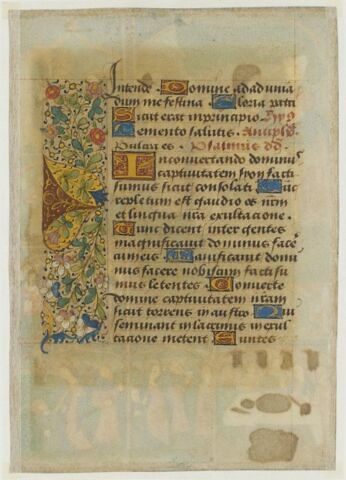 Intende. Domine ad adiuva
dum me festina. Gloria patri
Sicut erat in principio. Hyꝰ
Memento salutis. Antiph̄
Pulcra es. Psalmus d̄d̄.
In convertendo dominus
captivitatem syon facti
sumus sicut consolati. Tūc
repletum est gaudio os n̄m
et lingua n̄ra exultacione.
Tunc dicent inter gentes
magnificavit dominus face͛
cum eis. Magnificavit domi
nus facere nobiscum facti su
mus letentes. Converte
domine captivitatem n̄ram
sicut torrens in austro. Qui
seminant in lacrimis in exul
tacione metent. Euntes